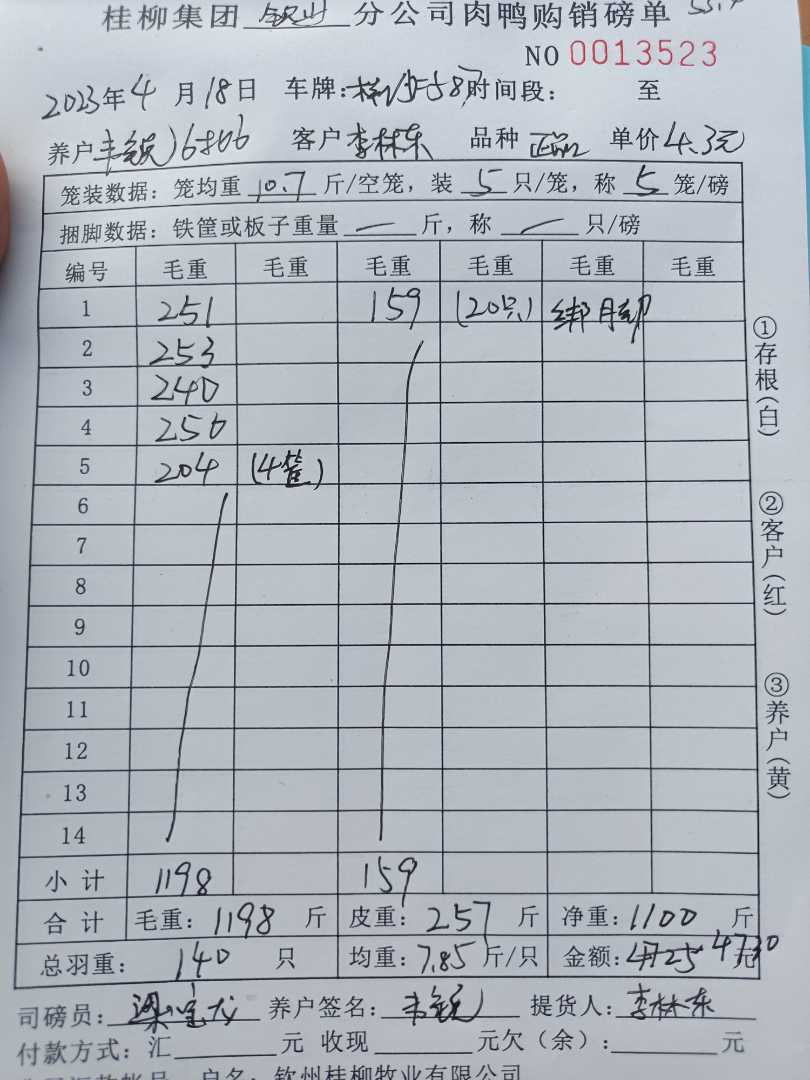 桂柳集团 钦州 分公司肉鸭购销磅单
NO 0013523
2023年4月18日 车牌: 时间段: 至
养户 韦锐 客户 李林东 品种 正品 单价 4.3元
笼装数据: 笼均重 10.7 斤/空笼, 装 5 只/笼, 称 5 笼/磅
捆脚数据: 铁筐或板子重量 — 斤, 称 — 只/磅
编号 毛重 毛重 毛重 毛重 毛重 毛重
1 251 159 (20只) 绑脚
2 253
3 240
4 250
5 204 (4筐)
6
7
8
9
10
11
12
13
14
小计 1198 159
合计 毛重: 1198 斤 皮重: 257 斤 净重: 1100 斤
总羽重: 140 只 均重: 7.85 斤/只 金额: 4725 4730 元
司磅员: 梁宝龙 养户签名: 韦锐 提货人: 李林东
付款方式: 汇 元 收现 元欠(余): 元
户名: 钦州桂柳牧业有限公司
①存根(白)
②客户(红)
③养户(黄)